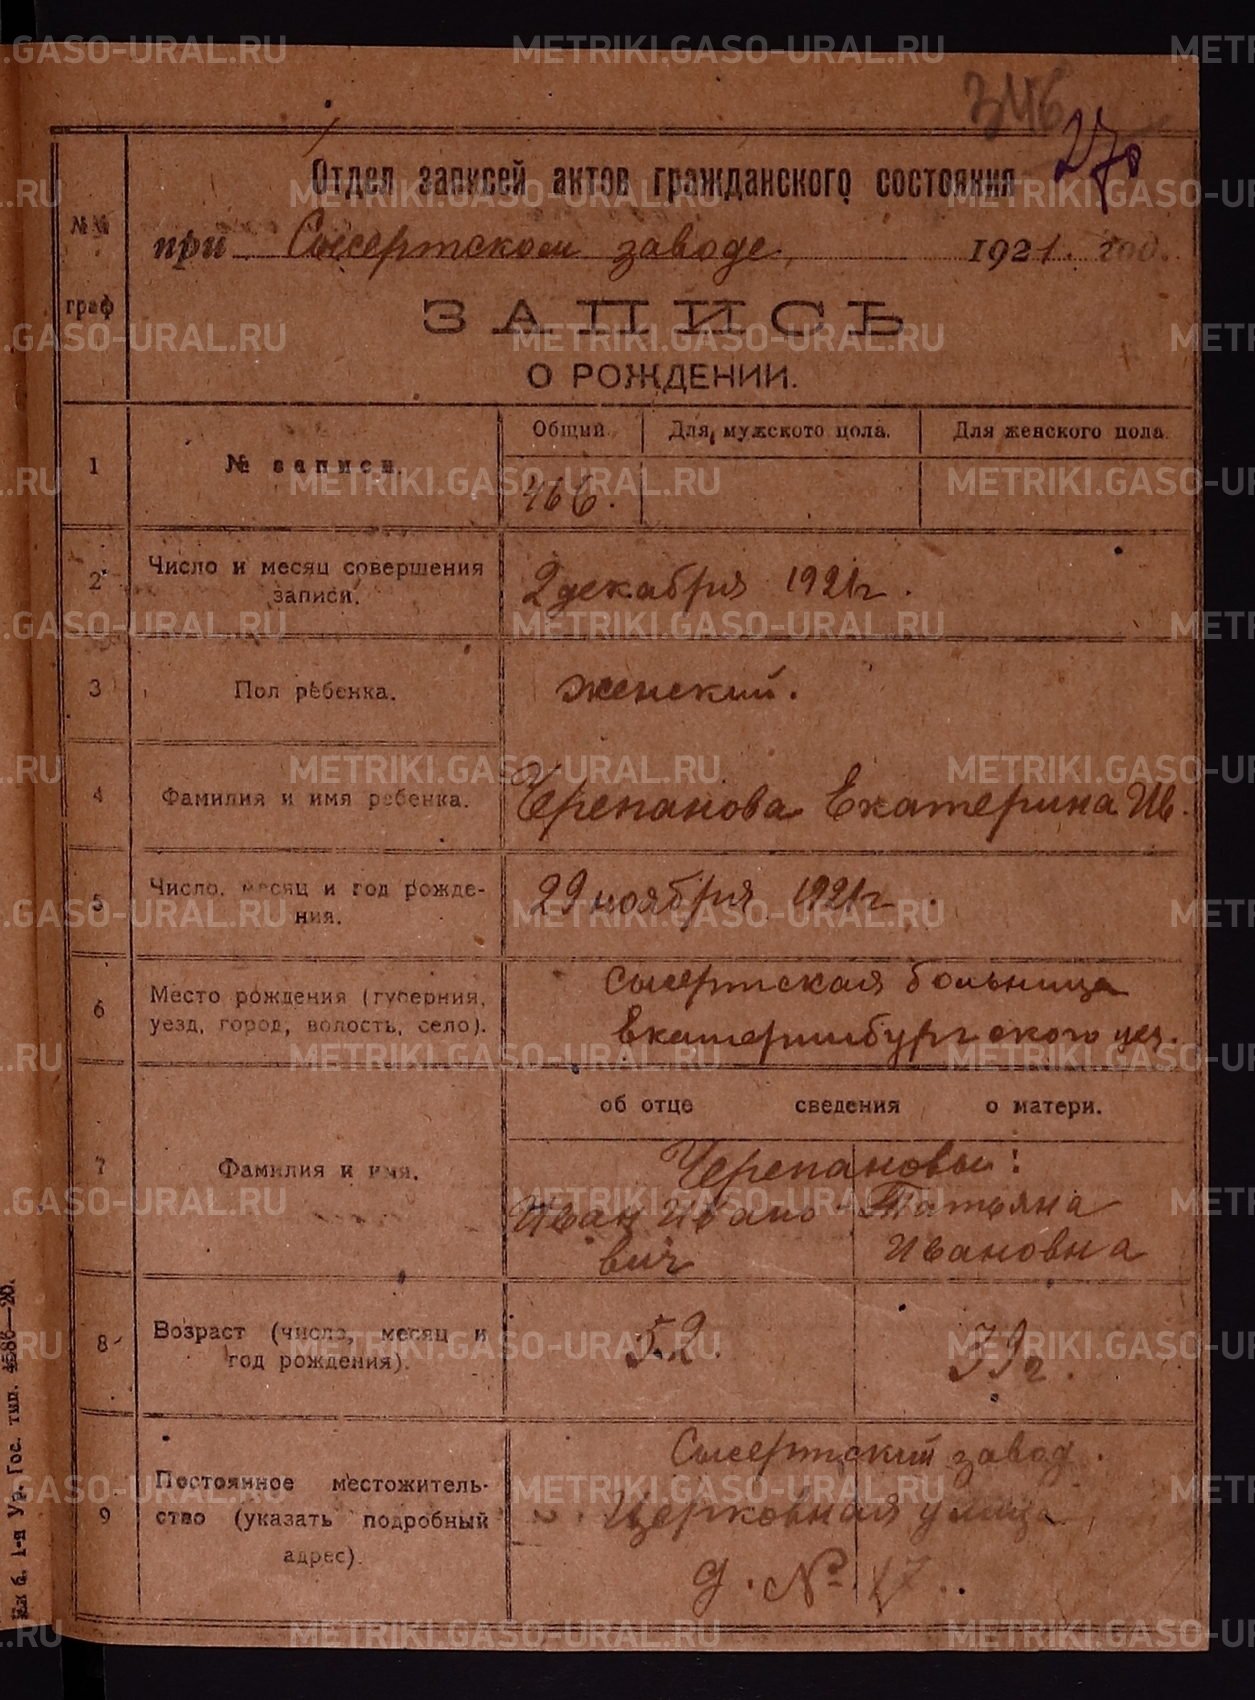 346
270
Отдел записей актов гражданского состояния
при Сысертском заводе 1921 год.
№№ граф
ЗАПИСЬ
О РОЖДЕНИИ.
Общий
Для мужского пола.
Для женского пола.
1
№ записи.
466.
2
Число и месяц совершения
записи.
2 декабря 1921 г.
3
Пол ребенка.
женский.
4
Фамилия и имя ребенка.
Черепанова Екатерина Ив.
5
Число, месяц и год рожде-
ния.
29 ноября 1921 г.
6
Место рождения (губерния,
уезд, город, волость, село).
Сысертская больница
Екатеринбургского уез.
об отце сведения о матери.
7
Фамилия и имя.
Черепановы:
Иван Ивано-
вич
Татьяна
Ивановна
8
Возраст (число, месяц и
год рождения).
52.
39 г.
9
Постоянное местожитель-
ство (указать подробный
адрес).
Сысертский завод.
Церковная улица
д. №
Ек б. 1-я Ур. Гос. тип. 4586—20.
METRIKI.GASO-URAL.RU